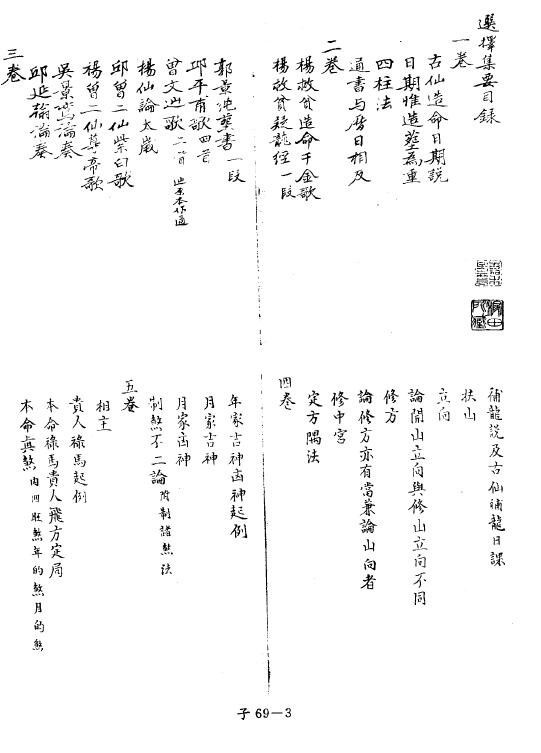 選擇集要目録
一卷
古仙造命日期説
日期惟造塟爲重
四柱法
通書与曆日相反
二卷
楊救貧造命千金歌
楊救貧疑龍經一段
郭景純塟書一段
邱平甫歌四首
曾文辿歌二首
楊仙論太歲
邱曾二仙紫白歌
楊曾二仙葬帝歌
吳景鸞論奏
邱延翰論奏
三卷
補龍説及古仙補龍日課
扶山
立向
論開山立向與修山立向不同
修方
論修方亦有當兼論山向者
修中宮
定方隅法
四卷
年家吉神凶神起例
月家吉神
月家凶神
制煞不二論 附制諸煞法
五卷
相主
貴人祿馬起例
本命祿馬貴人飛方定局
本命真煞 内泗旺煞年的煞月的煞
子69—3